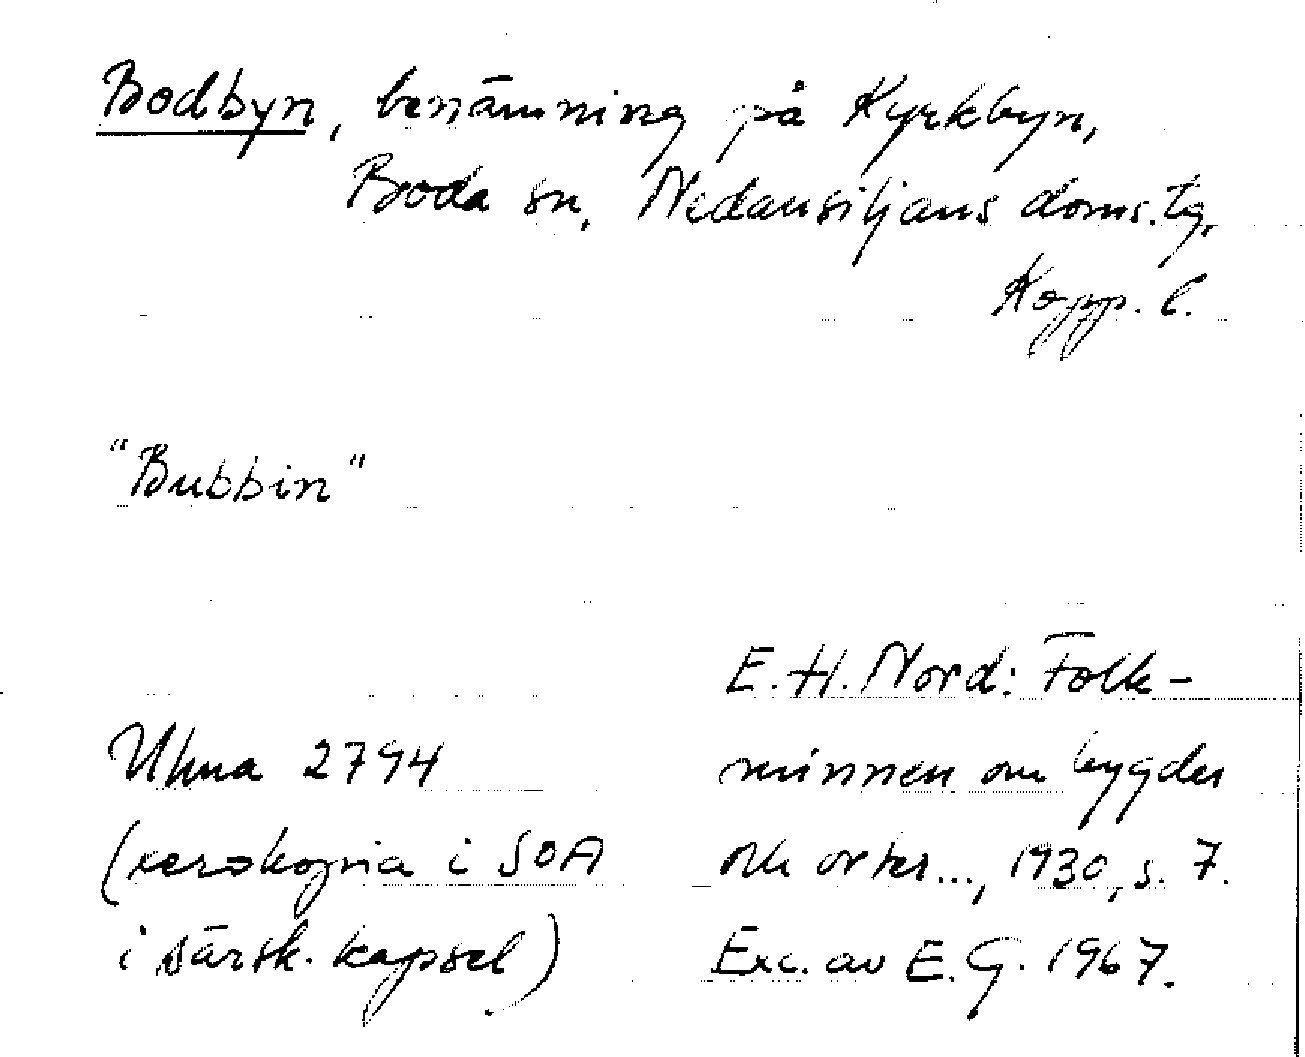 Bodbyn, benämning på Kyrkbyn,
Boda sn, Nedansiljans doms.tg,
Kopp. l.
"Bubbin"
E.H. Nord: Folk-
minnen om bygder
och orter..., 1930, s. 7.
Exc. av E.G. 1967.
Ulma 2794
(xerokopia i SOA
i särsk. kapsel)